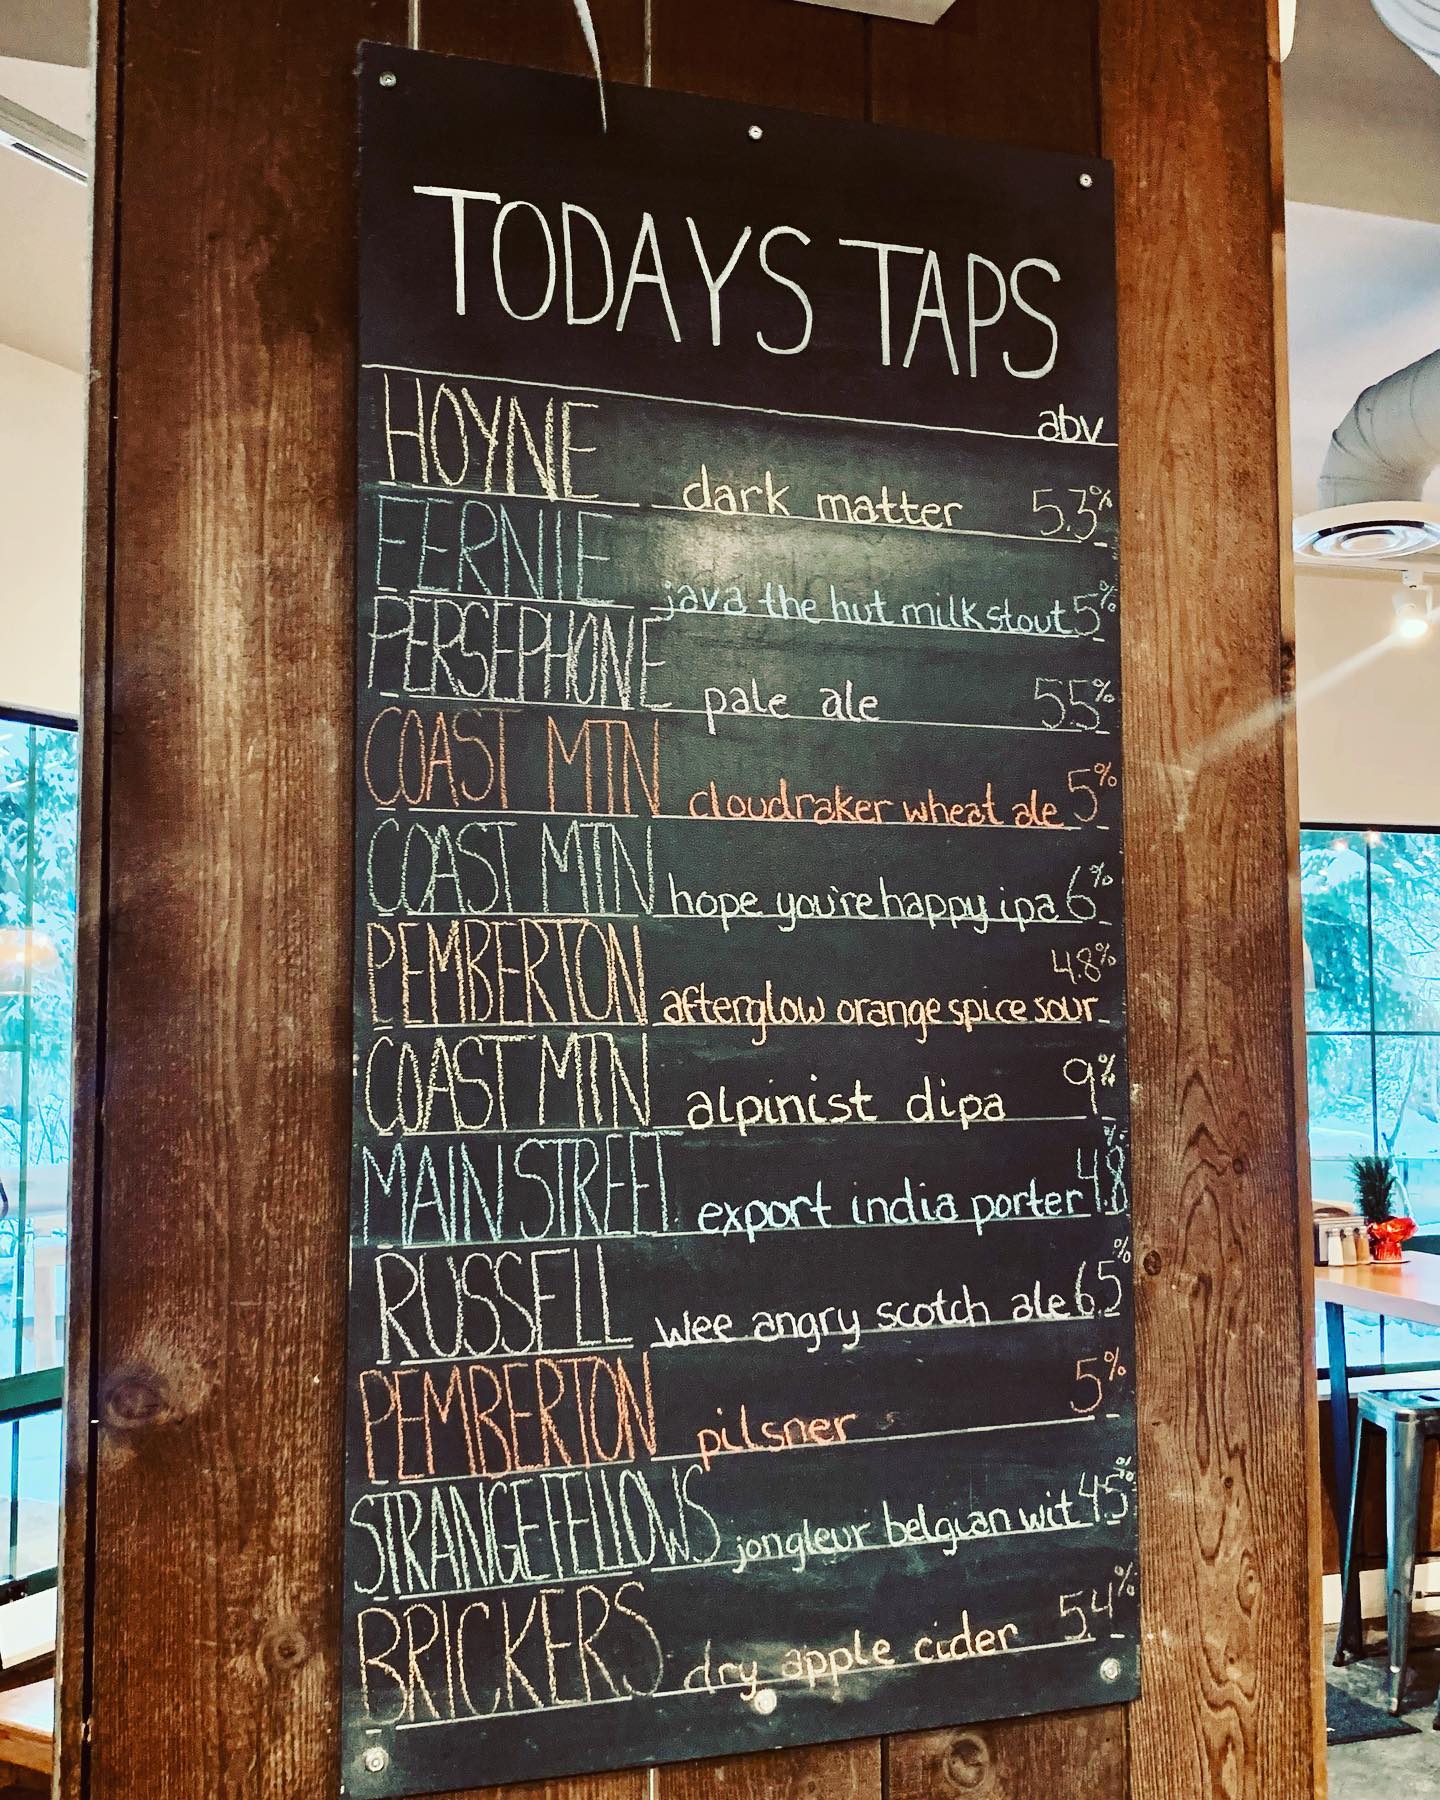 TODAYS TAPS
abv
HOYNE dark matter 5.3%
FERNIE java the hut milk stout 5%
PERSEPHONE pale ale 5.5%
COAST MTN cloudraker wheat ale 5%
COAST MTN hope you're happy ipa 6%
PEMBERTON afterglow orange spice sour 4.8%
COAST MTN alpinist dipa 9%
MAIN STREET export india porter 4.8%
RUSSELL wee angry scotch ale 6.5%
PEMBERTON pilsner 5%
STRANGEFELLOWS jongleur belgian wit 4.5%
BRICKERS dry apple cider 5.4%